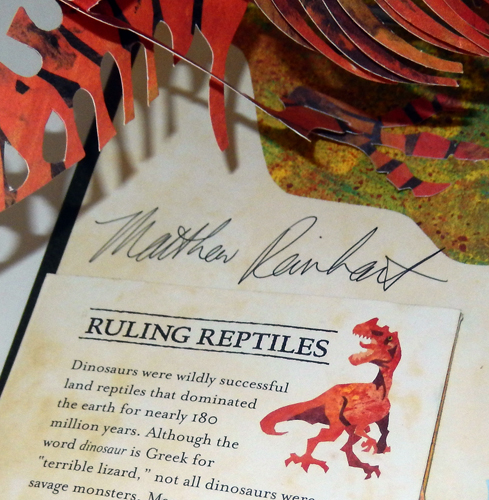 Matthew Reinhart
RULING REPTILES
Dinosaurs were wildly successful
land reptiles that dominated
the earth for nearly 180
million years. Although the
word dinosaur is Greek for
"terrible lizard," not all dinosaurs were
savage monsters.